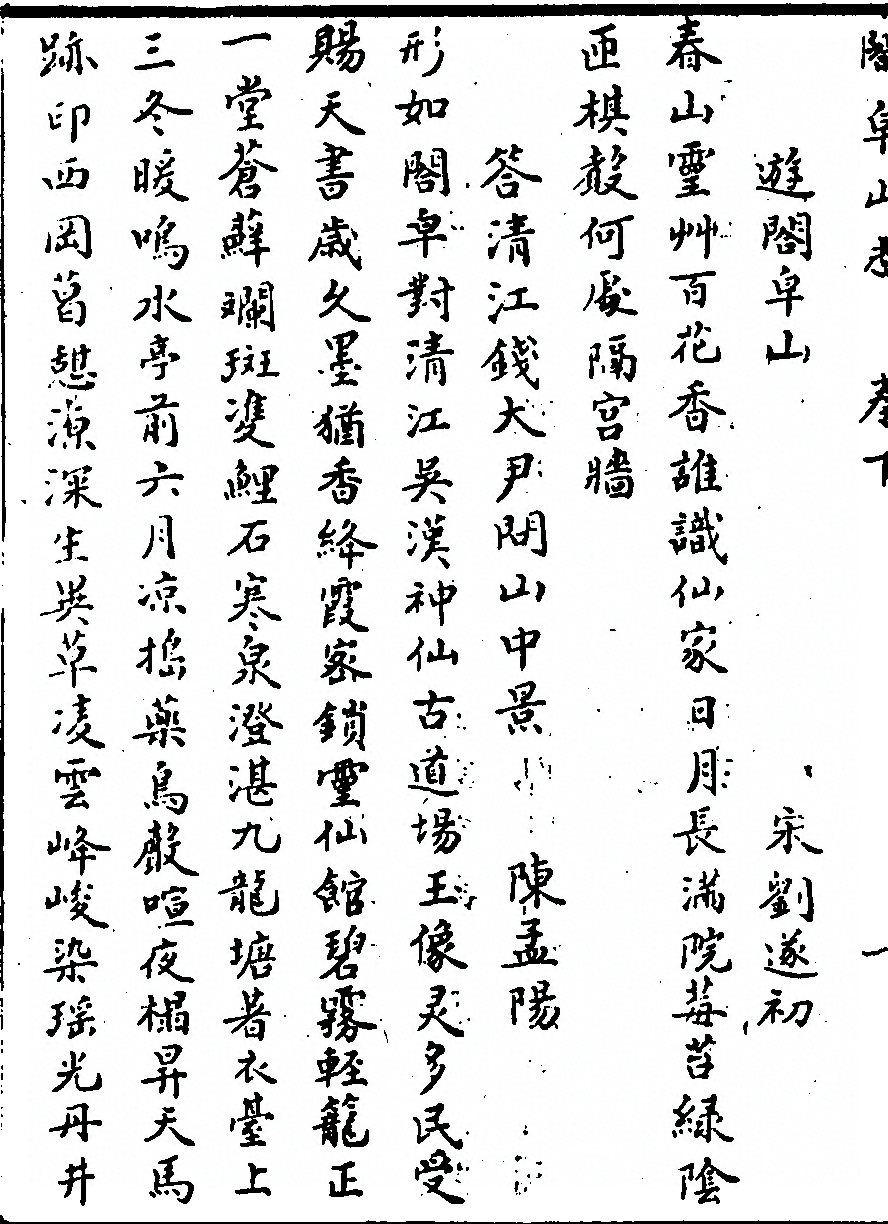 閤皁山志 卷下 一
遊閤皁山 宋劉遂初
春山靈艸百花香誰識仙家日月長滿院莓苔綠陰
匝棋聲何處隔宮牆
答清江錢大尹問山中景 陳孟陽
形如閤皁對清江吳漢神仙古道場王像灵多民受
賜天書歲久墨猶香絳霞密鎖靈仙館碧霧輕籠正
一堂蒼蘚斕斑雙鯉石寒泉澄湛九龍塘著衣臺上
三冬暖鳴水亭前六月凉搗藥鳥聲喧夜榻昇天馬
跡印西岡葛憩源深生異草凌雲峰峻染瑶光丹井